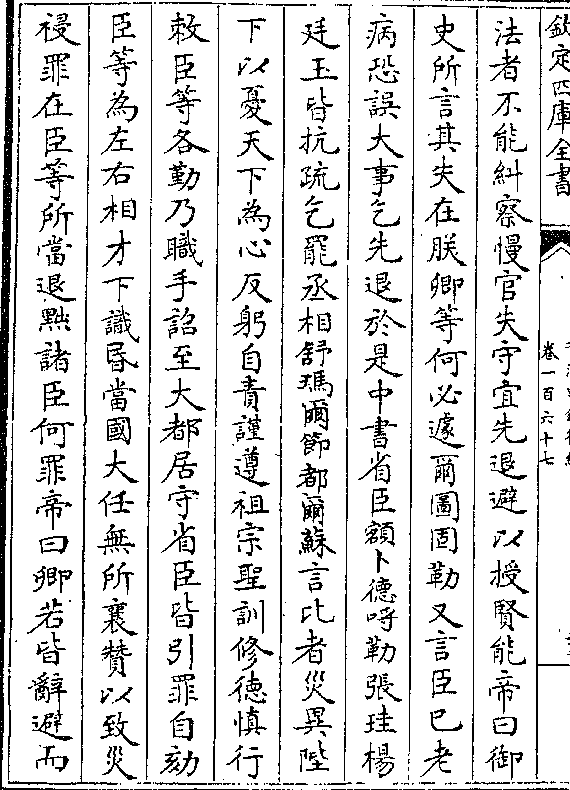 欽定四庫全書
卷一百六十七
法者不能糾察慢官失守宜先退避以授賢能帝曰御
史所言其失在朕卿等何必遽爾圖固勒又言臣已老
病恐誤大事乞先退於是中書省臣額卜德呼勒張珪楊
廷玉皆抗疏乞罷丞相舒瑪爾節都爾蘇言比者災異陛
下以憂天下為心反躬自責謹遵祖宗聖訓修德慎行
敕臣等各勤乃職手詔至大都居守省臣皆引罪自劾
臣等為左右相才下識昏當國大任無所襄贊以致災
祲罪在臣等所當退黜諸臣何罪帝曰卿若皆辭避而